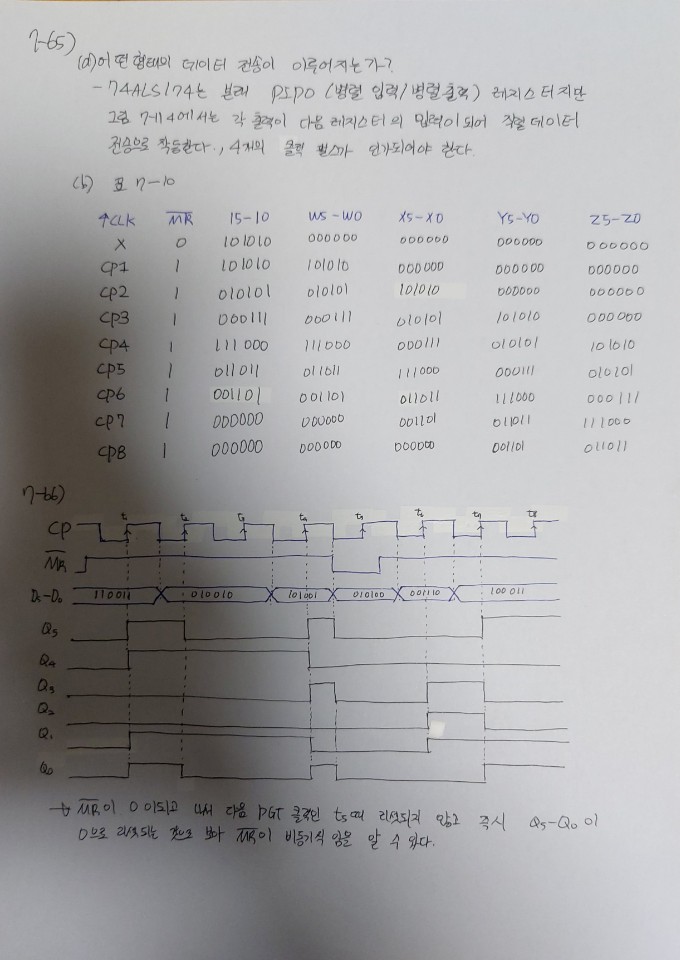 7-65)
(a) 어떤 형태의 데이터 전송이 이루어지는가?
- 74ALS174는 본래 PIPO (병렬 입력/병렬출력) 레지스터지만
그림 7-114에서는 각 출력이 다음 레지스터의 입력이 되어 직렬 데이터
전송으로 작동한다., 4개의 클럭 펄스가 인가되어야 한다.
(b) 표 7-10
↑CLK M̅R̅ I5-I0 W5-W0 X5-X0 Y5-Y0 Z5-Z0
X 0 101010 000000 000000 000000 000000
CP1 1 101010 101010 000000 000000 000000
CP2 1 010101 010101 101010 000000 000000
CP3 1 000111 000111 010101 101010 000000
CP4 1 111000 111000 000111 010101 101010
CP5 1 011011 011011 111000 000111 010101
CP6 1 001101 001101 011011 111000 000111
CP7 1 000000 000000 001101 011011 111000
CP8 1 000000 000000 000000 001101 011011
7-66)
t1 t2 t3 t4 t5 t6 t7 t8
CP
M̅R̅
D5-D0 110011 010010 101001 010100 001110 100011
Q5
Q4
Q3
Q2
Q1
Q0
→ M̅R̅이 0이되고 나서 다음 PGT 클럭인 t5때 리셋되지 않고 즉시 Q5-Q0이
0으로 리셋되는 것으로 보아 M̅R̅이 비동기식 임을 알 수 있다.